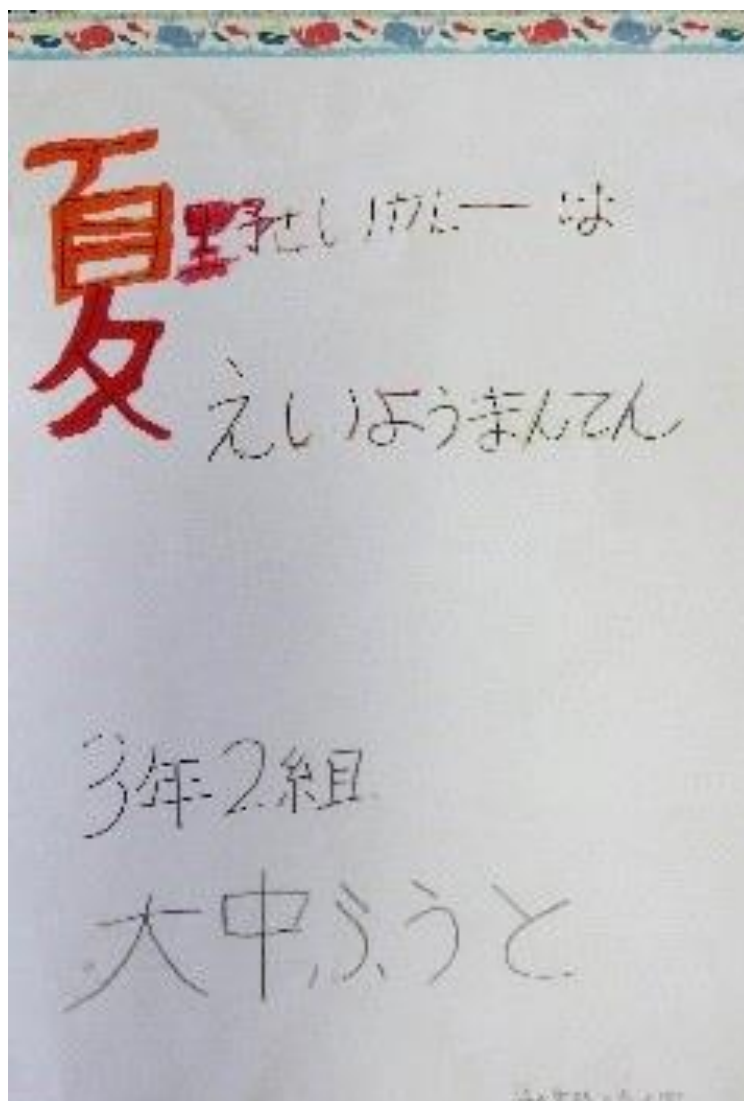 夏野さいカレーは
えいようまんてん
3年2組
大中ふうと